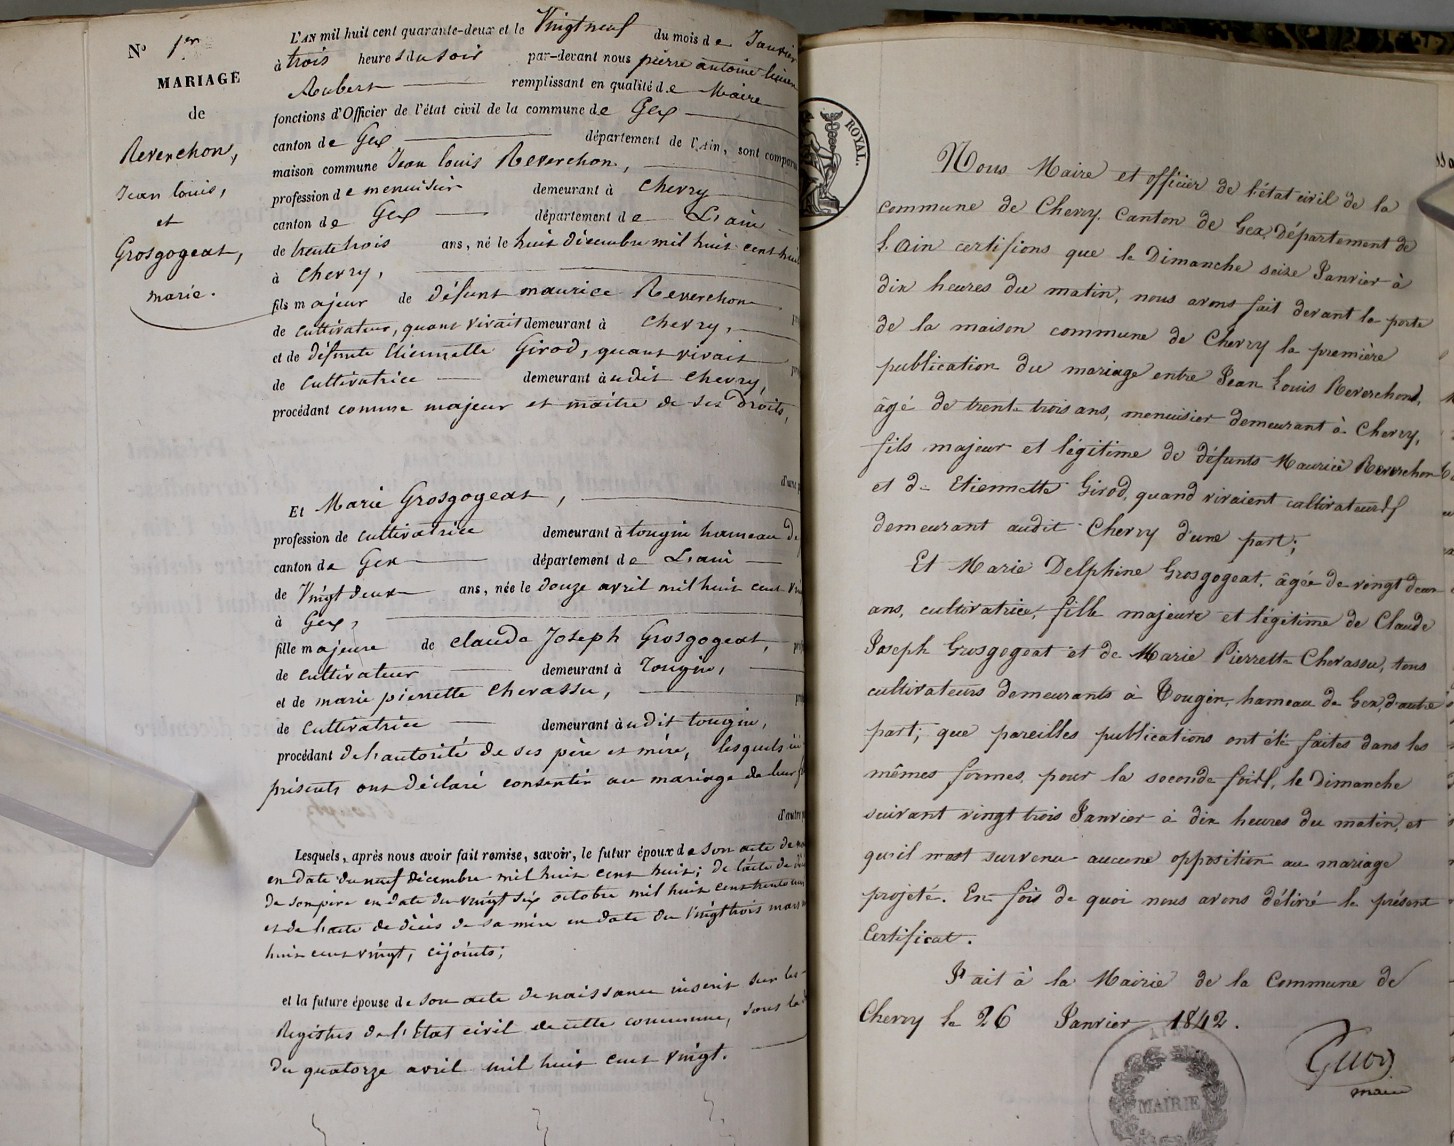 N° 1er
MARIAGE
de
Reverchon,
Jean louis,
et
Grosgogeat,
marie.
L'AN mil huit cent quarante-deux et le Vingt neuf du mois de Janvier
à trois heures du soir par-devant nous pierre antoine
Aubert remplissant en qualité de Maire
fonctions d'Officier de l'état civil de la commune de Gex
canton de Gex département de l'Ain, sont comparus
maison commune Jean louis Reverchon,
profession de menuisier demeurant à Chevry
canton de Gex département de L'ain
de trente trois ans, né le huit décembre mil huit cent huit
à Chevry,
fils majeur de défunt maurice Reverchon
de cultivateur, quant vivait demeurant à Chevry,
et de défunte Etiennette Girod, quant vivait
de cultivatrice demeurant à udit Chevry,
procédant comme majeur et maître de ses droits,
d'une p
Et Marie Grosgogeat,
profession de cultivatrice demeurant à tougin hameau de
canton de Gex département de L'ain
de Vingt deux ans, née le douze avril mil huit cent vin
à Gex,
fille majeure de claude Joseph Grosgogeat,
de cultivateur demeurant à Tougin,
et de marie pierrette Chevassu,
de cultivatrice demeurant à udit tougin,
procédant de l'autorité de ses père et mère, lesquels ici
présents ont déclaré consentir au mariage de leur f
d'autre p
Lesquels, après nous avoir fait remise, savoir, le futur époux de son acte de
en date du neuf décembre mil huit cent huit; de l'acte de
de son père en date du vingt six octobre mil huit cent trente
et de l'acte de décès de sa mère en date du Vingt trois mars
huit cent vingt, cijoints;
et la future épouse de son acte de naissance inscrit sur les
Registres de l'Etat civil de cette commune, sous la
du quatorze avril mil huit cent vingt.
ROYAL.
Nous Maire et officier de l'état civil de la
commune de Chevry. Canton de Gex, département de
l'Ain certifions que le Dimanche seize Janvier à
dix heures du matin, nous avons fait devant la porte
de la maison commune de Chevry la première
publication du mariage entre Jean Louis Reverchon,
âgé de trente trois ans, menuisier demeurant à Chevry,
fils majeur et légitime de défunts Maurice Reverchon
et de Etiennette Girod, quand vivaient cultivateurs
demeurant audit Chevry d'une part;
Et Marie Delphine Grosgogeat, âgée de vingt deux
ans, cultivatrice, fille majeure et légitime de Claude
Joseph Grosgogeat et de Marie Pierrette Chevassu, tous
cultivateurs demeurants à Tougin, hameau de Gex, d'autre
part; que pareilles publications ont été faites dans les
mêmes formes, pour la seconde fois, le Dimanche
suivant vingt trois Janvier à dix heures du matin, et
qu'il n'est survenu aucune opposition au mariage
projeté. En fois de quoi nous avons délivré le présent
Certificat.
Fait à la Mairie de la Commune de
Chevry le 26 Janvier 1842.
maire
MAIRIE